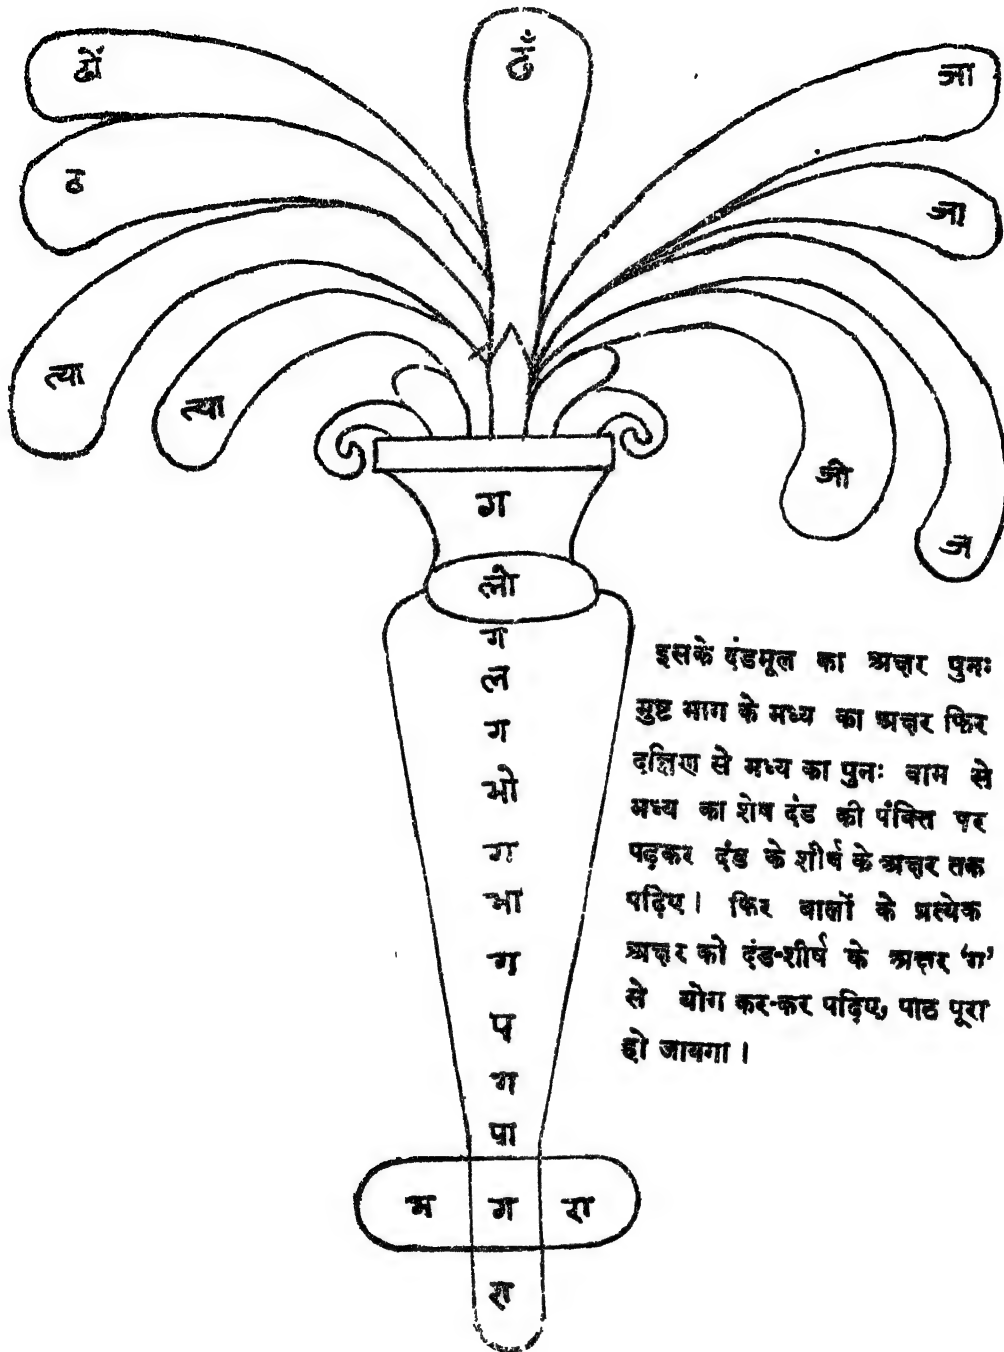 ढों
ढँ
जा
ठ
जा
त्या
त्या
जो
ज
ग
लो
ग
ल
ग
भो
ग
भा
ग
प
ग
पा
भ ग रा
रा
इसके दंडमूल का अक्षर पुनः
मुष्ट भाग के मध्य का अक्षर फिर
दक्षिण से मध्य का पुनः वाम से
मध्य का शेष दंड की पंक्ति पर
पढ़कर दंड के शीर्ष के अक्षर तक
पढ़िए। फिर बालों के प्रत्येक
अक्षर को दंड-शीर्ष के अक्षर ‘ग’
से योग कर-कर पढ़िए, पाठ पूरा
हो जायगा।